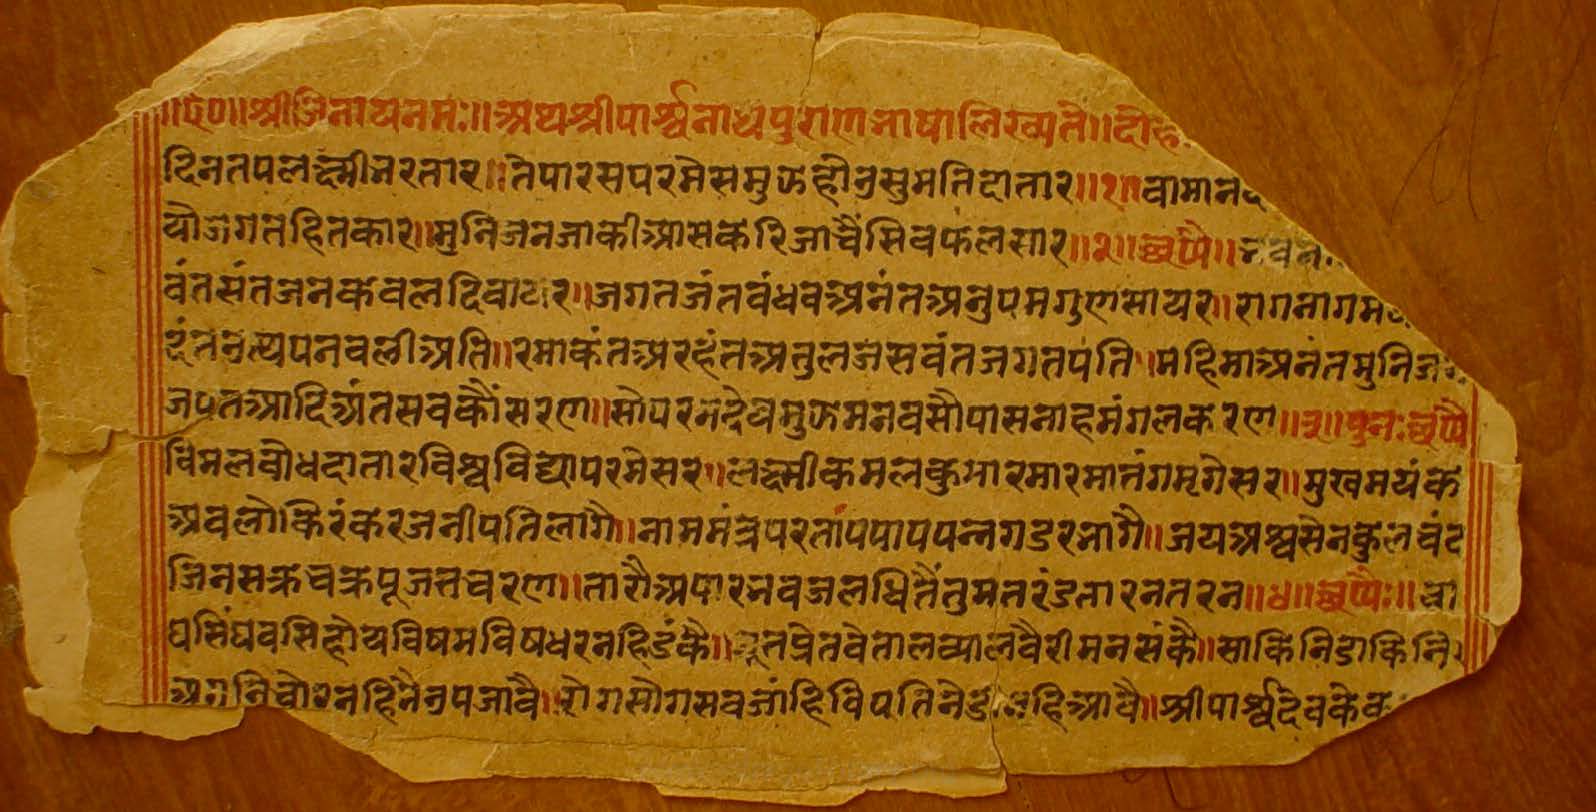 ॥ए६०॥श्रीजिनायनमः॥अथश्रीपार्श्वनाथपुराणभाषालिख्यते॥दोहा
दिनतपलक्ष्मीभरतार॥तेपारसपरमेसमुझहौनुसुमतिदातार॥१॥वामानं
यौजगतहितकार॥मुनिजनजाकीआसकरिजाचैंसिवफलसार॥२॥छप्पै॥
वंतसंतजनकवल॥जगतजंतवंधवअनंतअनुपमगुणसायर॥रागनागम
दंतभुत्थपनवलीअति॥रमाकंतअरहंतअतुलजसवंतजगतपति॥महिमाअनंतमुनिज
जपतआदिअंतसवकौंसरण॥सोपरमदेवमुझमनवसौपासनाहमंगलकरण॥३॥पुनःछप्पै
विमलवोधदातारविश्वविद्यापरमेसर॥लक्ष्मीकमलकुमारमारमातंगमृगेसर॥मुखमयंके
अवलोकिरंकरजनीपतिलागै॥नाममंत्रपरतापपापपन्नगडरभागै॥जयअश्वसेनकुलचंद
जिनसक्रचक्रपूजतचरण॥तारौअपारभवजलधितैंतुमतरंडतारनतरन॥४॥छप्पैः॥वा
घसिंघवसिहोयविषमविषधरनहिडंकै॥भूतप्रेतवेतालव्यालवैरीमनसंकै॥साकिनिडाकिनि
अगनिचोरनहिभैनुपजावै॥रोगसोगसवजांहिविपतिनेडैनहिआवै॥श्रीपार्श्वदेवकेक